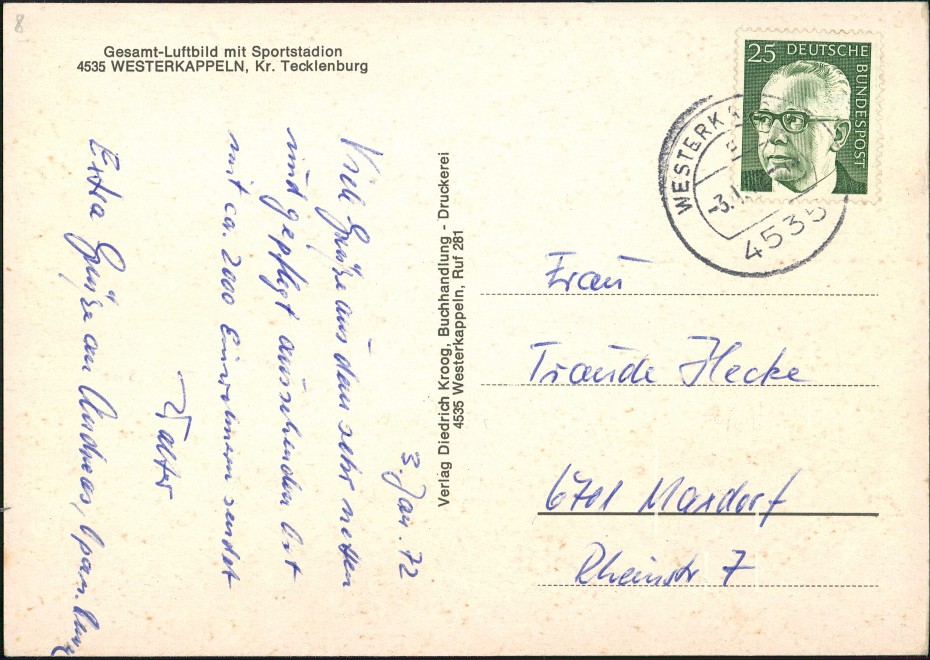 8
Gesamt-Luftbild mit Sportstadion
4535 WESTERKAPPELN, Kr. Tecklenburg
3. Jan. 72
Viele Grüße aus dem sehr netten
und gepflegt aussehenden Ort
mit ca. 2000 Einwohnern sendet
Walter
Extra Grüße an Andreas, Opa
Verlag Diedrich Kroog, Buchhandlung - Druckerei
4535 Westerkappeln, Ruf 281
25 DEUTSCHE
BUNDESPOST
WESTERK
-3.1.
4535
Frau
Traude
6701 Maxdorf
Rheinstr 7